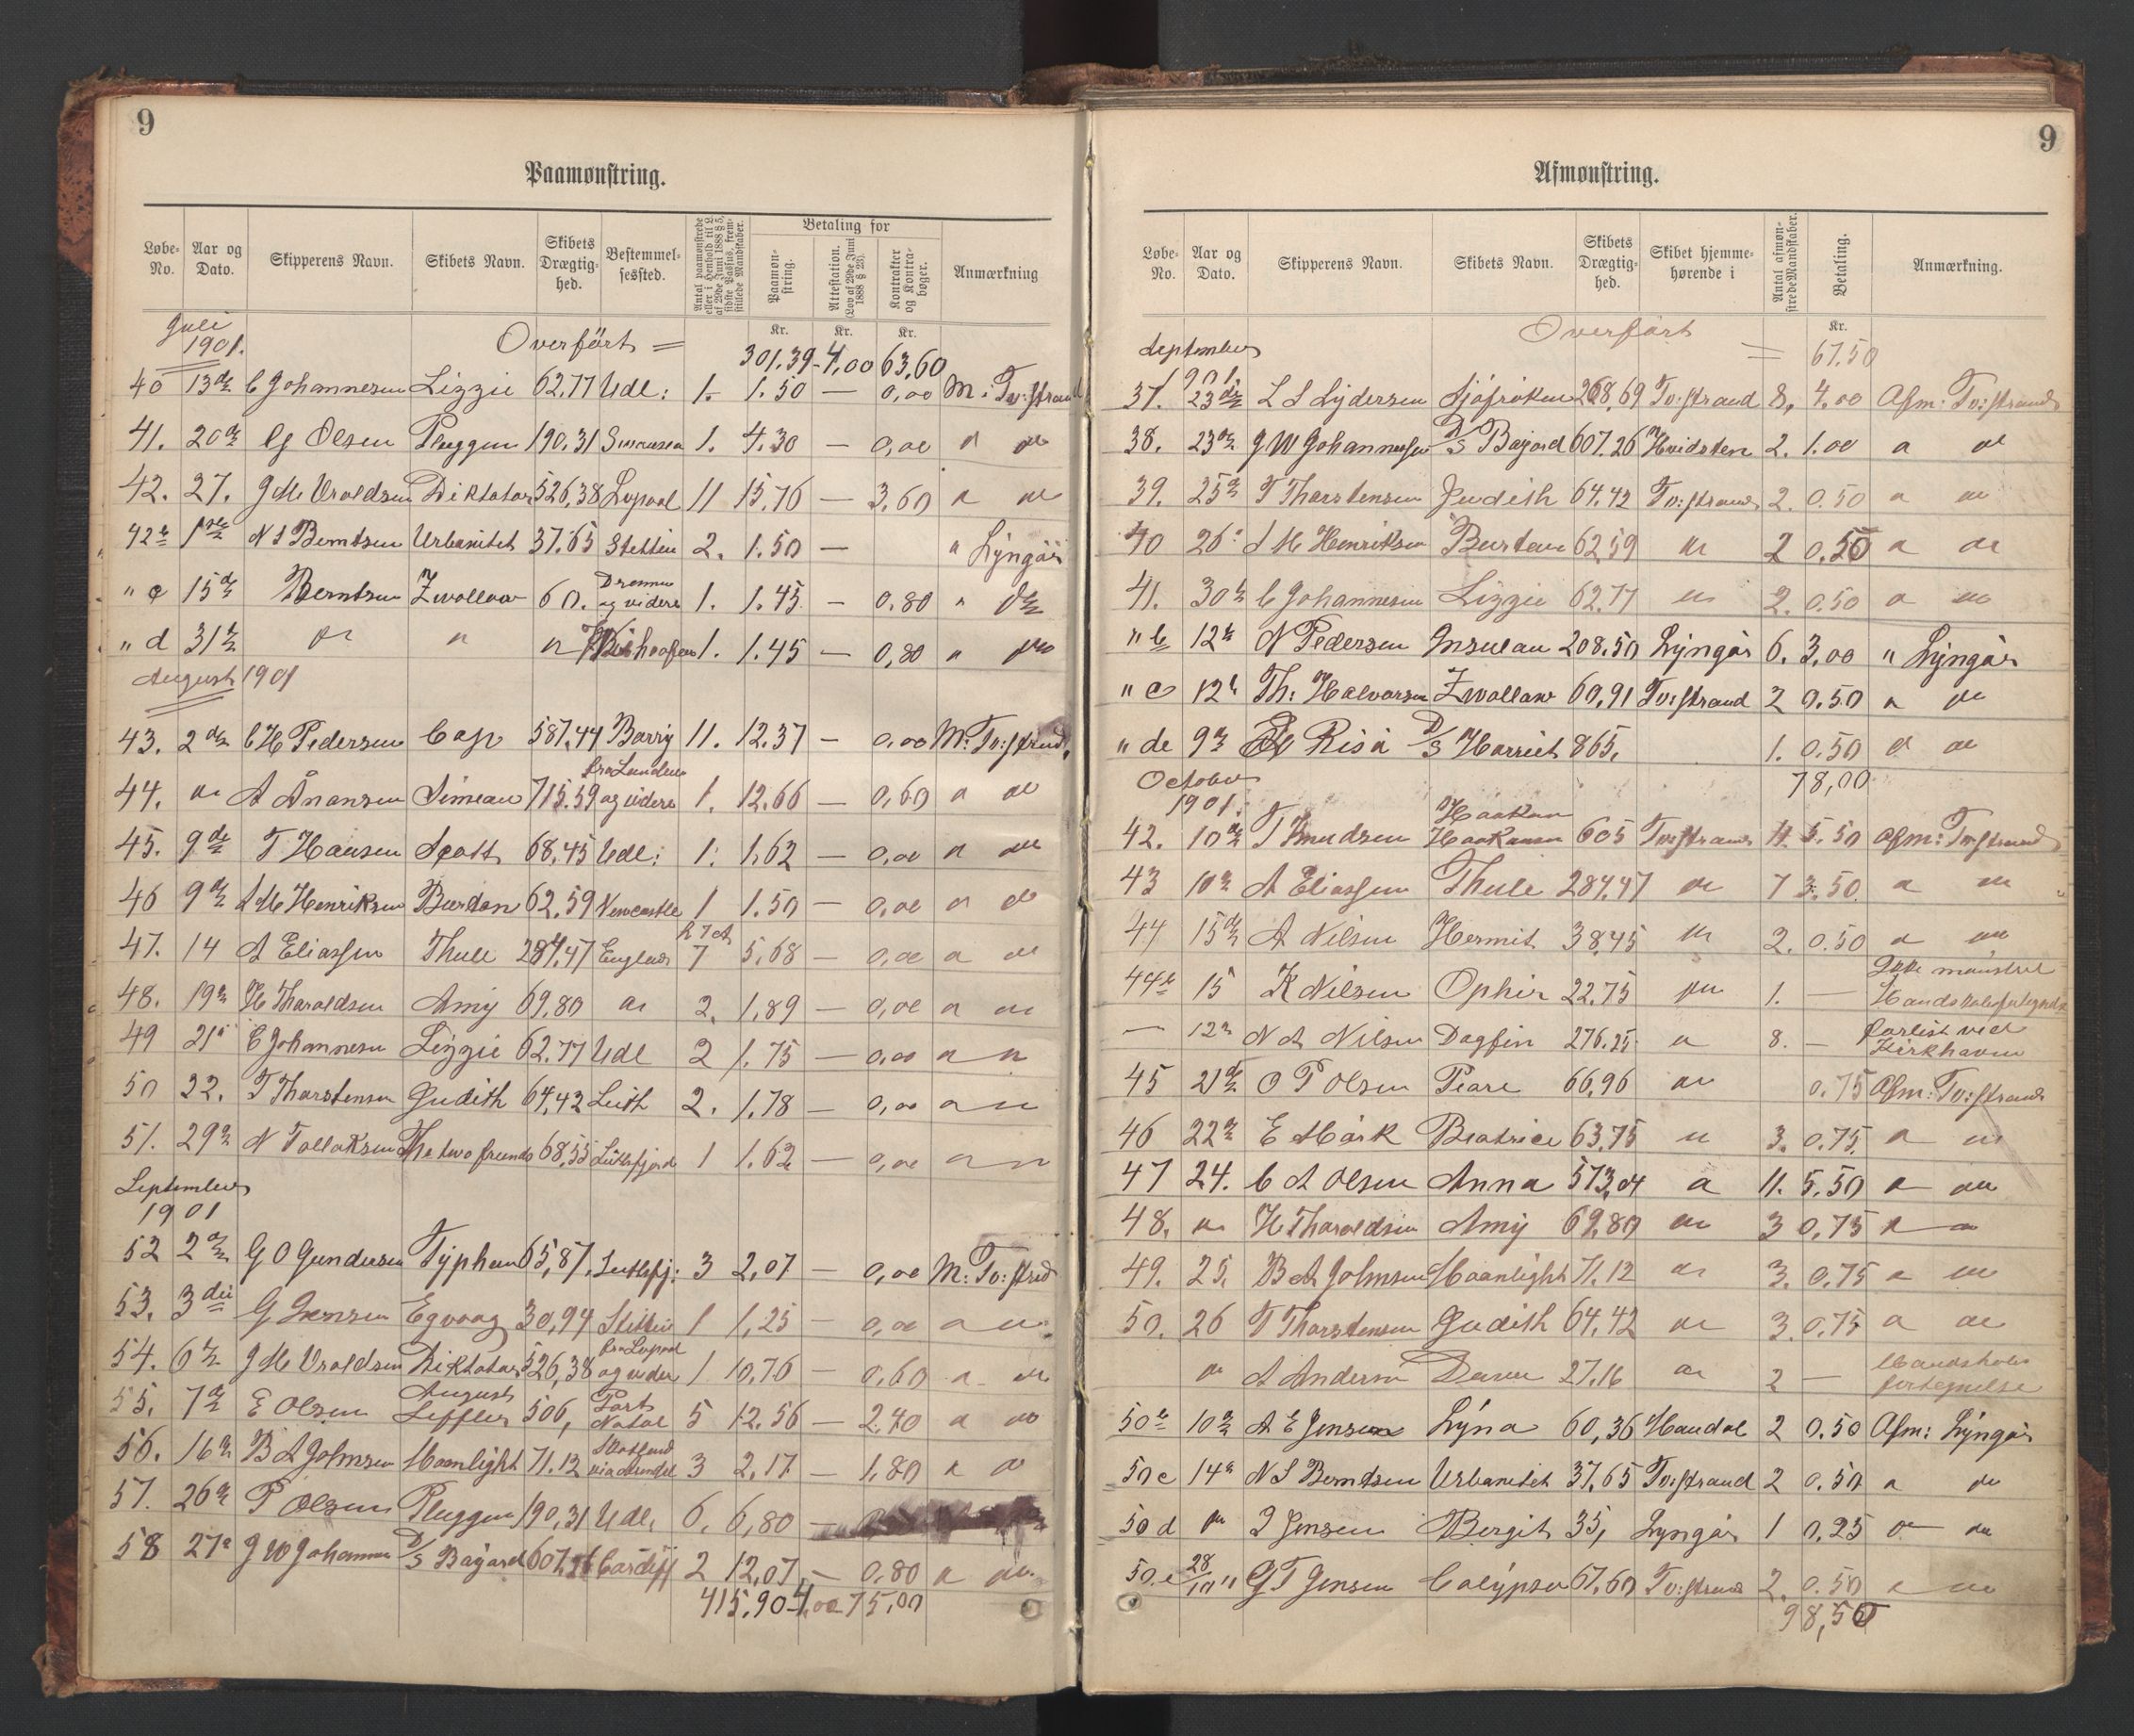 9
Paamønstring.
Løbe-No. Aar og Dato. Skipperens Navn. Skibets Navn. Skibets Drægtig-hed. Bestemmel-sessted. Antal paamønstrede eller i Henhold til L. af 29de Juni 1888 § 5, sidste Passus, frem-stillede Mandskaber. Betaling for Paamøn-string. Attestation. (Lov af 29de Juni 1888 § 23). Kontrakter og Kontra-bøger. Anmærkning
Kr. Kr. Kr.
Juli 1901. Overført = 301,39 - 4,00 63,60
40 13de C Johannesen Lizzie 62.77 Udl: 1. 1.50 — 0,00 M: Tv:strand
41. 20de Olsen Pluggen 190.31 Swansea 1. 4.30 — 0,00 " "
42. 27. J M Uroldsen Diktator 526,38 Lvpool 11 15,76 — 3,60 " "
42b 1ste N S Berntsen Urbanitet 37.65 Stettin 2. 1.50 — " Lyngør
" c 15de Berntsen Zwollow 60. og videre 1. 1.45 — 0,80 " do
" d 31te " " " 1. 1.45 — 0,80 " "
August 1901
43. 2den C H Pedersen Cap 587,44 Barry 11. 12.37 — 0,00 M: Tv:strand
44. " A Ånonsen Simeon 715.59 fra London og videre 1. 12.66 — 0,60 " "
45. 9de T Hansen Scott 68,45 Udl: 1. 1,62 — 0,00 " "
46 9de S M Henriksen Burton 62.59 Newcastle 1 1.50 — 0,00 " "
47. 14 A Eliassen Thule 284,47 England 7 5,68 — 0,00 " "
48. 19de H Tharaldsen Amy 69,80 " 2. 1,89 — 0,00 " "
49 21 C Johannesen Lizzie 62.77 Udl 2 1.75 — 0,00 " "
50 22. T Thorstensen Judith 64,42 Leith 2. 1,78 — 0,00 " "
51. 29de N Tollaksen The two friends 68,55 1 1.62 — 0,00 " "
September 1901
52 2den G O Gundersen Typhon 65,87. 3 2,07 — 0,00 M: Tv:strd
53. 3die G Jensen Egvaag 30,94 Stettin 1 1,25 — 0,00 " "
54. 6te J M Uroldsen Diktator 526,38 fra Lvpool og videre 1 10,76 — 0,60 " "
55. 7de E Olsen August Leffler 506, Port Natal 5 12.56 — 2.40 " "
56. 16de B A Johnsen Moonlight 71.12 via Arendal 3 2,17 — 1,80 " "
57. 26de P Olsen Pluggen 190,31 Udl. 6. 6,80 —
58 27de J W Johannesen D/S Bayard 607,26 Cardiff 2 12,07 — 0,80 " "
415,90 4,00 75,00
9
Afmønstring.
Løbe-No. Aar og Dato. Skipperens Navn. Skibets Navn. Skibets Drægtig-hed. Skibet hjemme-hørende i Antal afmøn-strede Mandskaber. Betaling. Anmærkning.
Kr.
September 1901. Overført = 67,50
37. 23de L S Lydersen Sjøfröken 268,69 Tv:strand 8, 4.00 Afm: Tv:strand
38. 23de J W Johannesen D/S Bayard 607.26 Hvidsten 2. 1.00 " "
39. 25de T Thorstensen Judith 64.42 Tv:strand 2. 0.50 " "
40 26 S M Henriksen Burton 62,59 " 2 0.50 " "
41. 30te C Johannesen Lizzie 62,77 " 2. 0.50 " "
" b 12te N Pedersen Insulan 208.50 Lyngør 6. 3,00 " Lyngør
" c 12te Th: Halvorsen Zwollow 60,91 Tv:strand 2 0.50 " "
" de 9de Risø D/S Harriet 865. 1. 0.50 " "
October 1901. 78,00
42. 10de T Knudsen Haakon Haakonsen 605 Tv:strand 11. 5.50 Afm: Tv:strand
43 10de A Eliassen Thule 284.47 " 7 3.50. " "
44 15de A Nilsen Hermit 38,45 " 2. 0.50 " "
44b 15 K Nilsen Ophir 22.75 " 1. — Ikke mønstret
— 12te N A Nilsen Dagfin 276.25 " 8. — forlist ved Kirkhavn
45 21de O P Olsen Pearl 66,96 " 0.75 Afm: Tv:strand
46 22de E Mörk Beatrice 63.75 " 3. 0.75. " "
47 24. C A Olsen Anna 573,04 " 11. 5.50 " "
48. " H Tharaldsen Amy 69,80 " 3 0,75 " "
49. 25. B A Johnsen Moonlight 71.12 " 3. 0.75 " "
50. 26 T Thorstensen Judith 64,42 " 3. 0.75 " "
" A Andersen 27,16 " 2 — Mandskabs fortegnelse
50b 10de A E Jensen Lyna 60,36 Mandal 2 0.50 Afm: Lyngør
50c 14de N S Berntsen Urbanitet 37,65 Tv:strand 2 0.50 " "
50d " J Jensen Bergit 35, Lyngør 1 0.25 " "
50.e 28/10 G T Jensen Calypso 67,60 Tv:strand 2. 0.50 " "
98,50